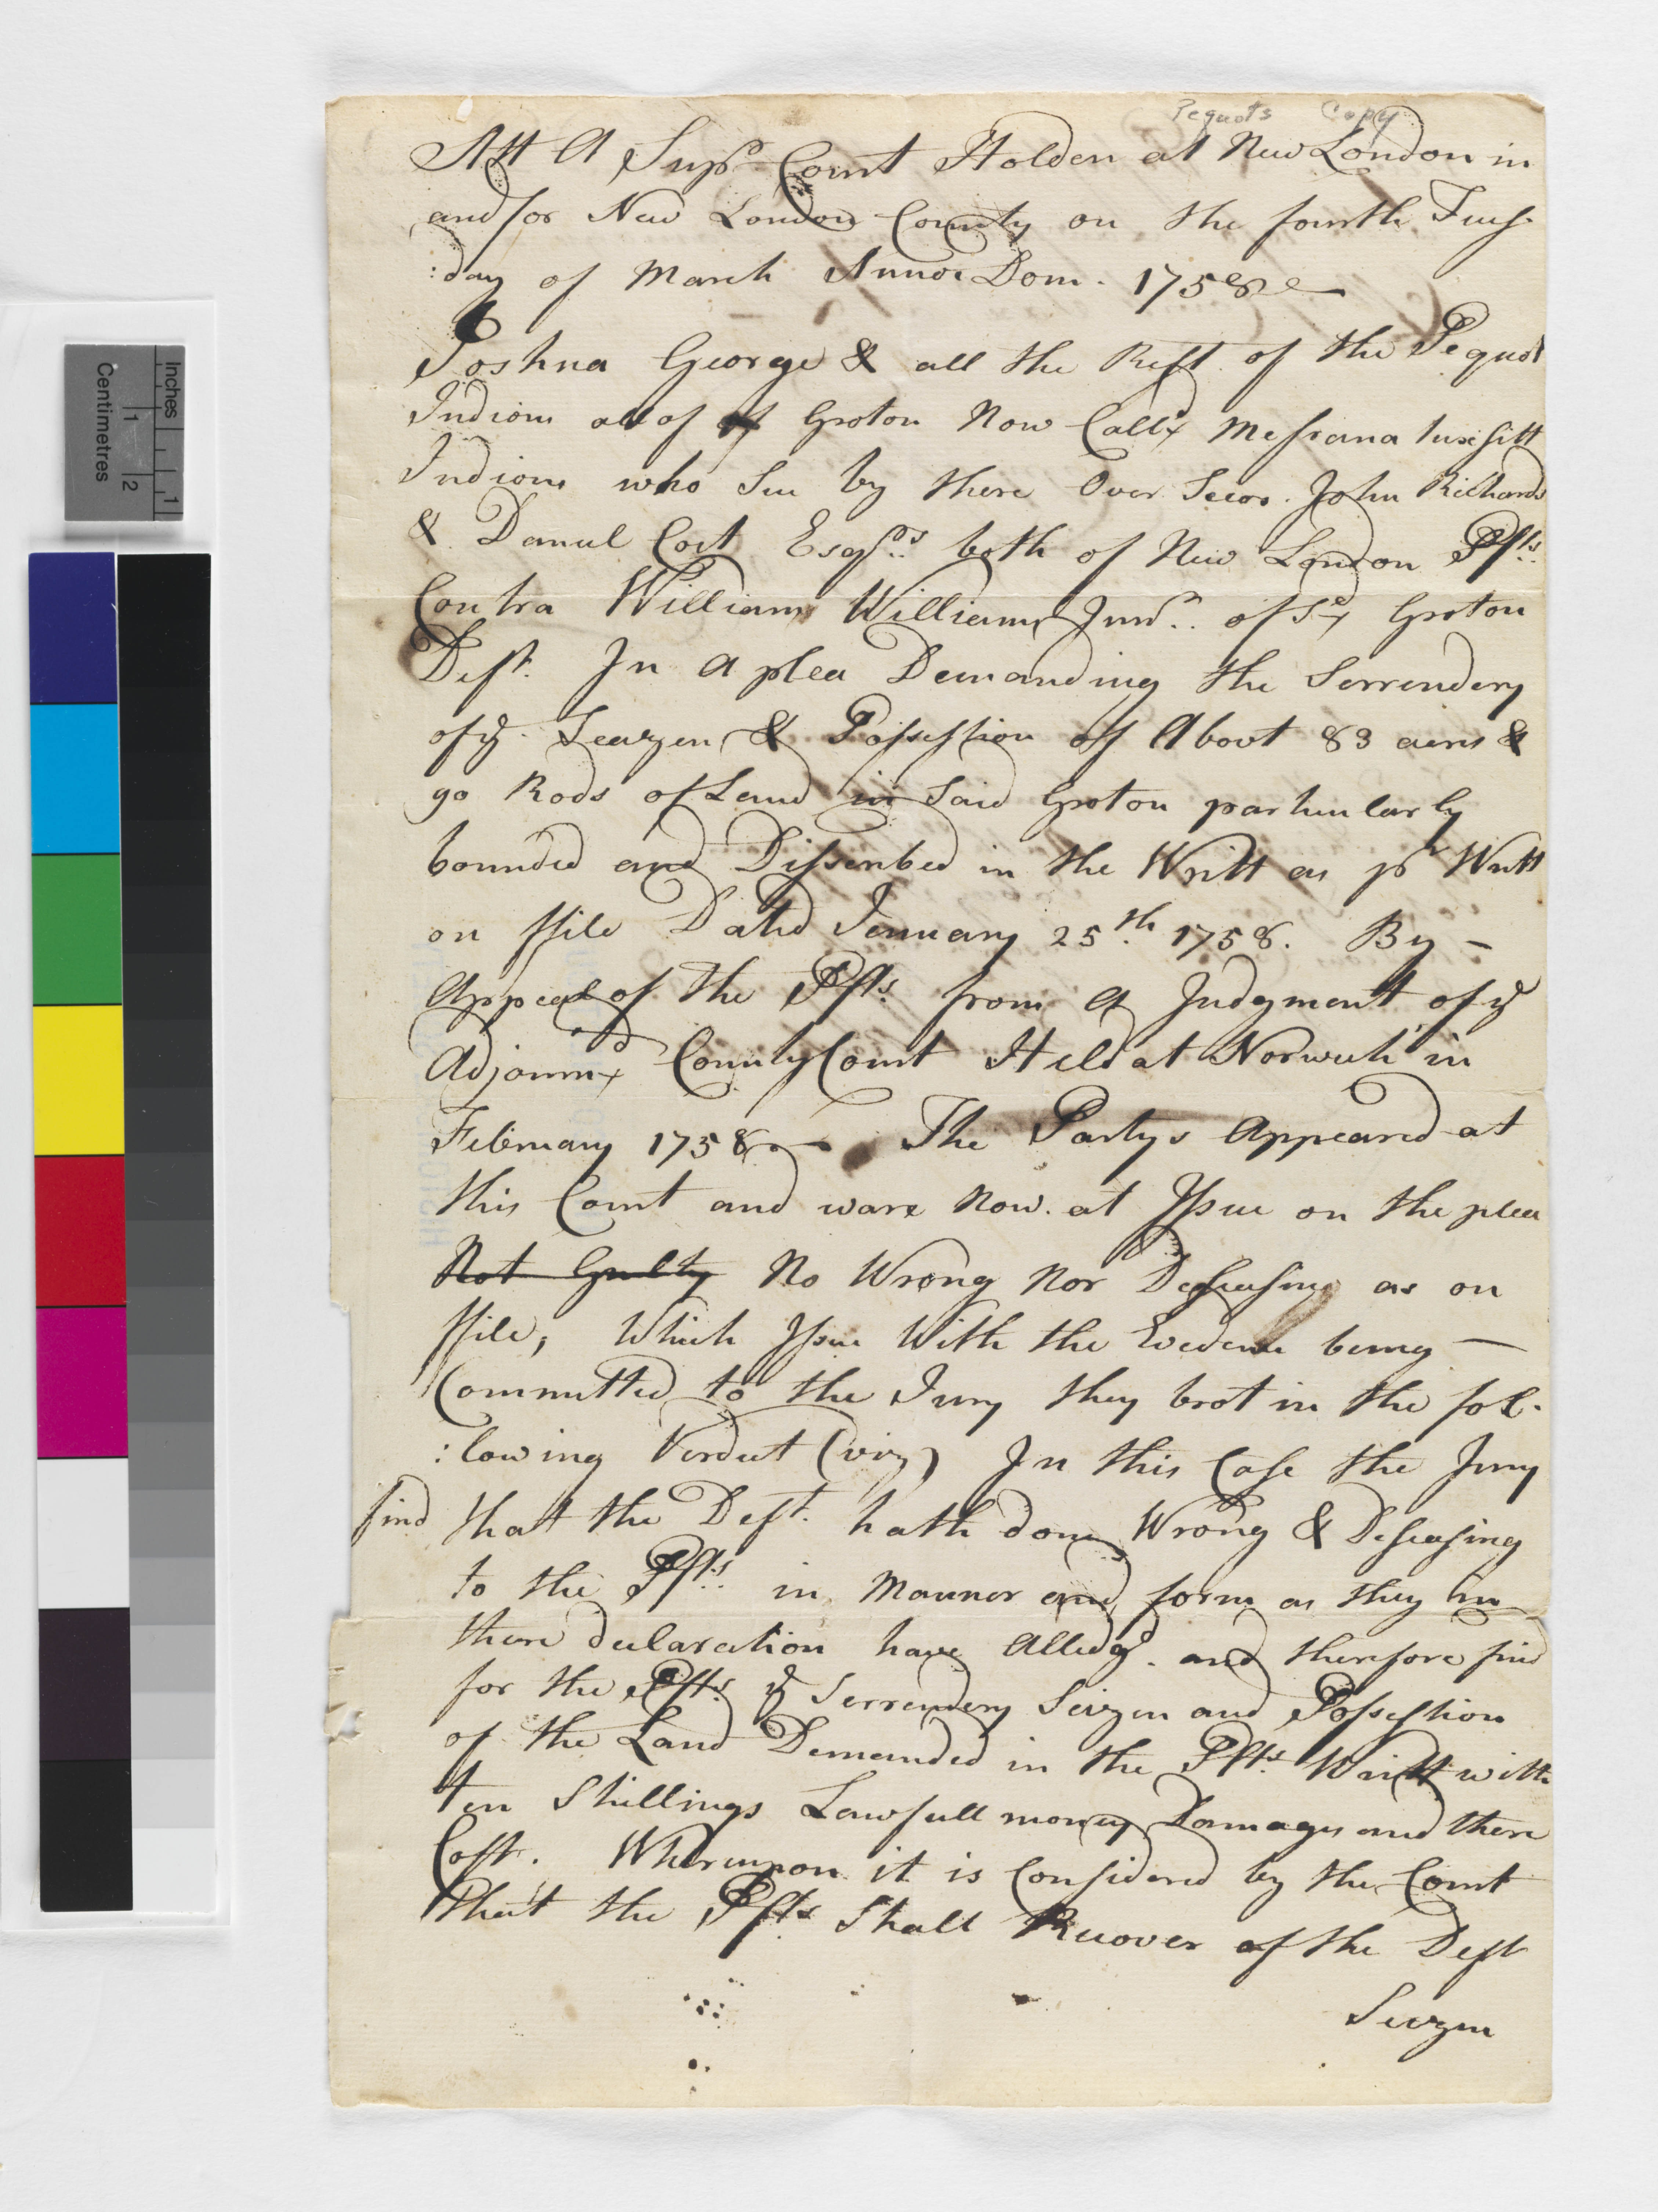 Pequots Copy
Att A Supr Court Holden at New London in
and for New London County on the fourth Tues
:day of March Annoe Dom. 1758
Joshua George & all the Rest of the Pequot
Indions all of Groton Now Calld Messhana tuxsitt
Indions who Sue by there Over Seeors John Richards
& Daniel Coit Esqrs both of New London Plfs
Contra William Williams Junr. of sd Groton
Deft. In A plea Demanding the Serrendery
of ye Seazen & Possesstion of About 83 acres &
90 Rods of Land in Said Groton particularly
bounded and Disscribed in the Writt as pr Writt
on ffile Dated Jenuary 25th 1758. By –
Appeal of the Plfs from A Judgment of ye
Adjournd County Court Held at Norwich in
February 1758 – The Partys Appeared at
this Court and ware Now at Issue on the plea
Not Guilty No Wrong Nor Desseasing as on
ffile, Which Issue With the Evedence being –
Committed to the Jury they brot in the fol-
:lowing Verdict (viz) In this Case the Jury
find that the Deft. hath done Wrong & Disseasing
to the Plfs in Manner and form as they in
there declaration have Alledgd. and therefore find
for the Plfs ye Serrendery Seizen and Possesstion
of the Land Demanded in the Plfs Writt with
ten Shillings Lawfull money Damages and there
Cost. Whereupon it is Considered by the Court
That the Plfs Shall Recover of the Deft
Seizen
Inches
1
Centimetres
1
2